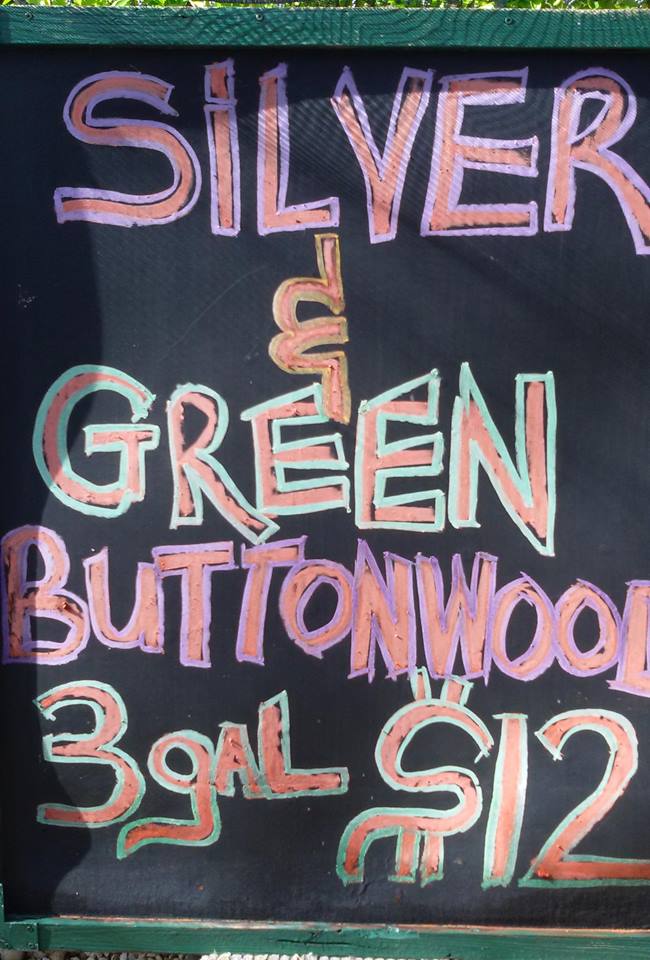 SiLVER
&
GREEN
BUTTONWOOD
3gAL $12